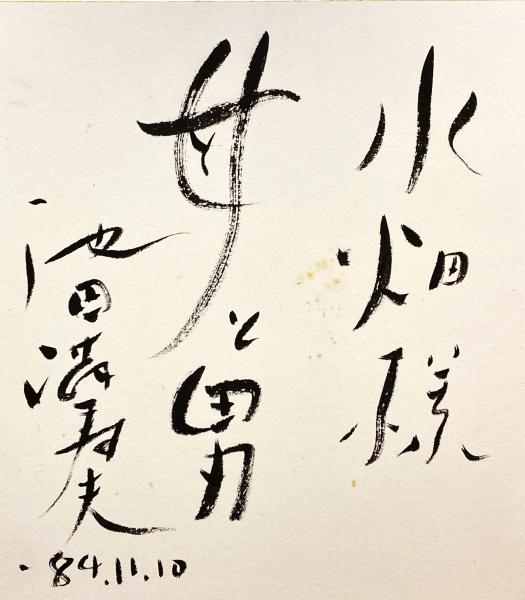 水畑様
女と男
池田満寿夫
'84.11.10